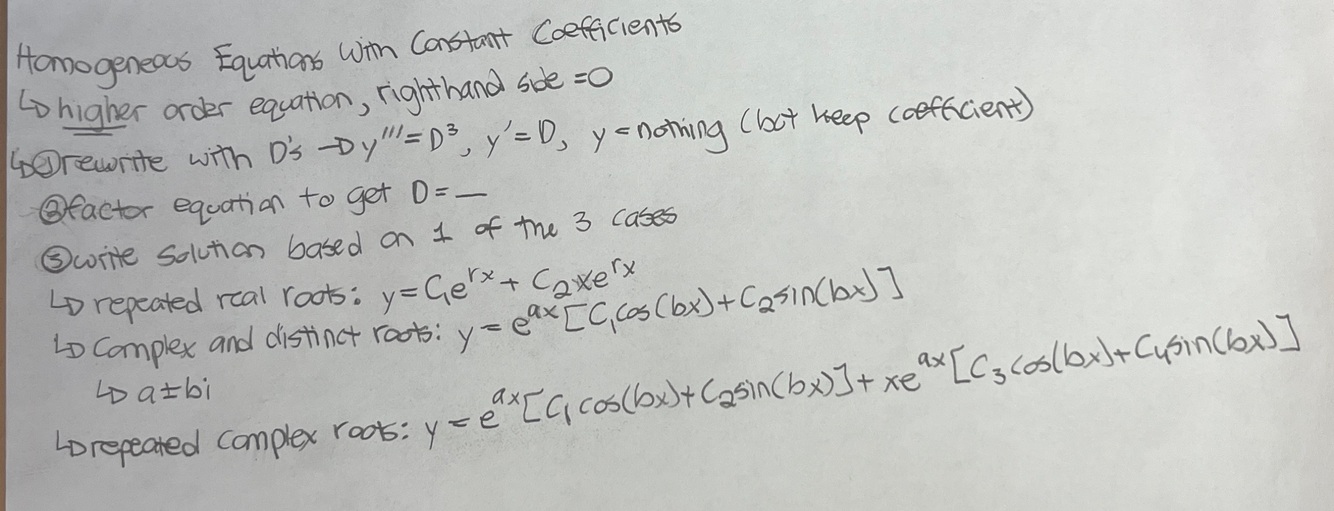 Homogeneous Equations with Constant Coefficients
↳ higher order equation, righthand side =0
↳ ① rewrite with D's → y'''=D³, y'=D, y=nothing (but keep coefficient)
② factor equation to get D=_
③ write solution based on 1 of the 3 cases
↳ repeated real roots: y=C₁e^rx + C₂xe^rx
↳ Complex and distinct roots: y=e^ax[C₁cos(bx)+C₂sin(bx)]
↳ a±bi
↳ repeated complex roots: y=e^ax[C₁cos(bx)+C₂sin(bx)]+xe^ax[C₃cos(bx)+C₄sin(bx)]